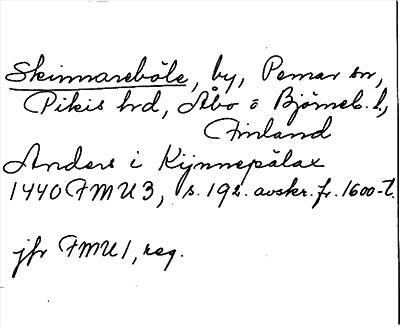 Skinnareböle, by, Pemar sn,
Pikis hrd, Åbo o Björneb. l.,
Finland
Anders i Kijnnepälax
1440 FMU 3, s. 192. avskr. fr. 1600-t.
jfr FMU 1, reg.